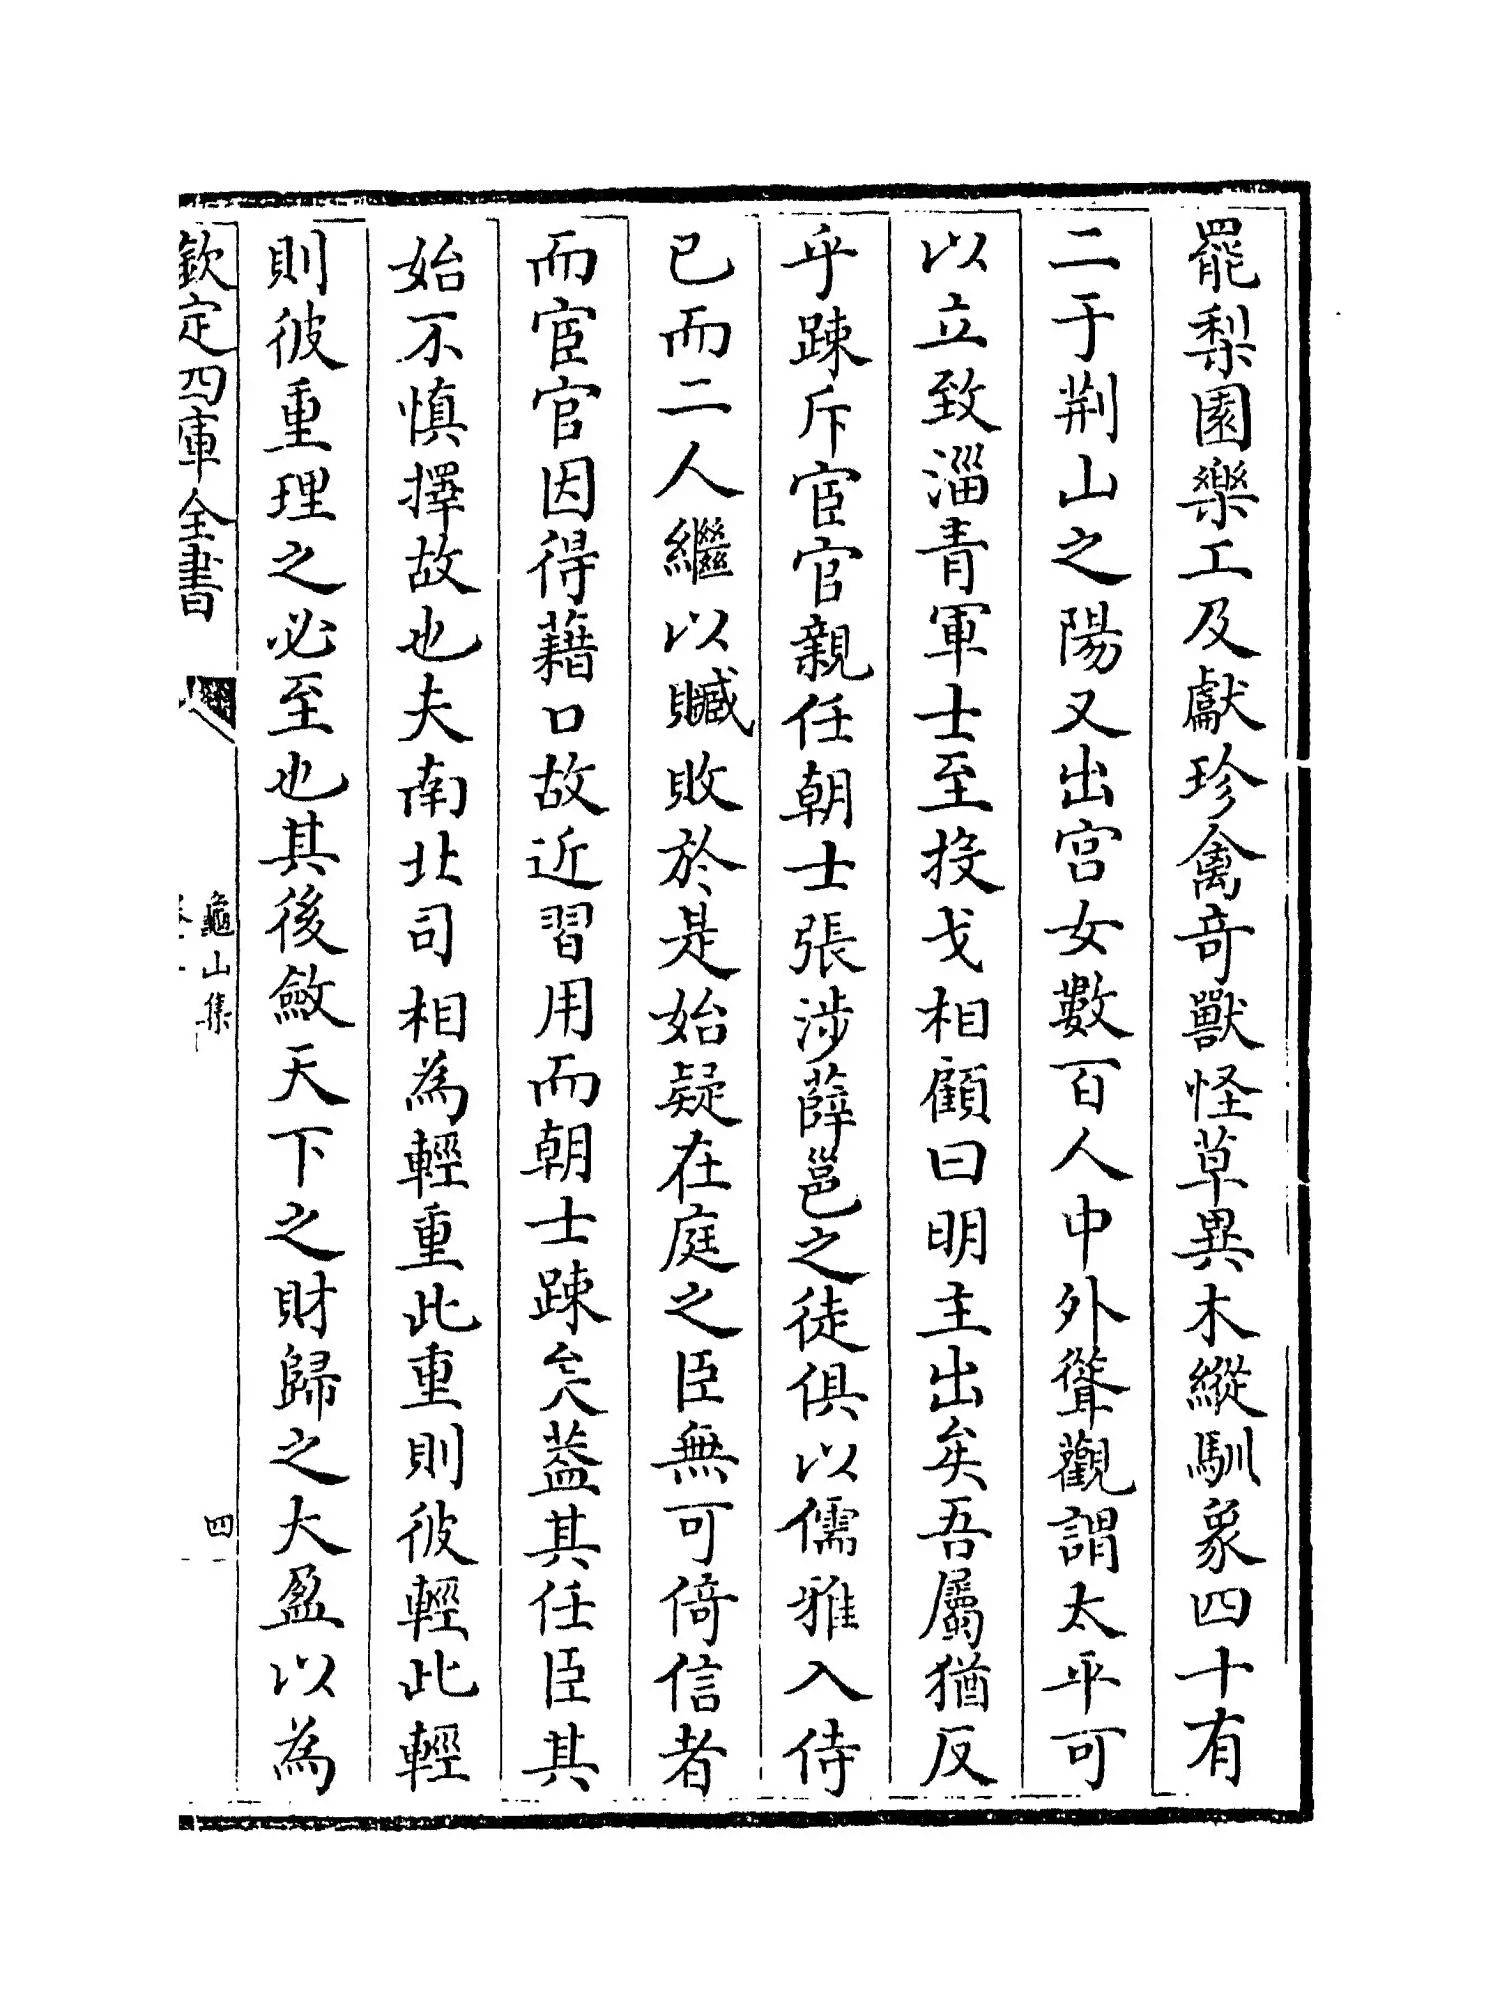 罷梨園樂工及獻珍禽竒獸怪草異木縱馴象四十有
二于荆山之陽又出宫女數百人中外聳觀謂太平可
以立致淄青軍士至投戈相顧曰明主出矣吾屬猶反
乎踈斥宦官親任朝士張涉薛邕之徒俱以儒雅入侍
已而二人繼以贓敗於是始疑在庭之臣無可倚信者
而宦官因得藉口故近習用而朝士踈矣葢其任臣其
始不慎擇故也夫南北司相為輕重此重則彼輕此輕
則彼重理之必至也其後斂天下之財歸之大盈以為
欽定四庫全書
龜山集
四